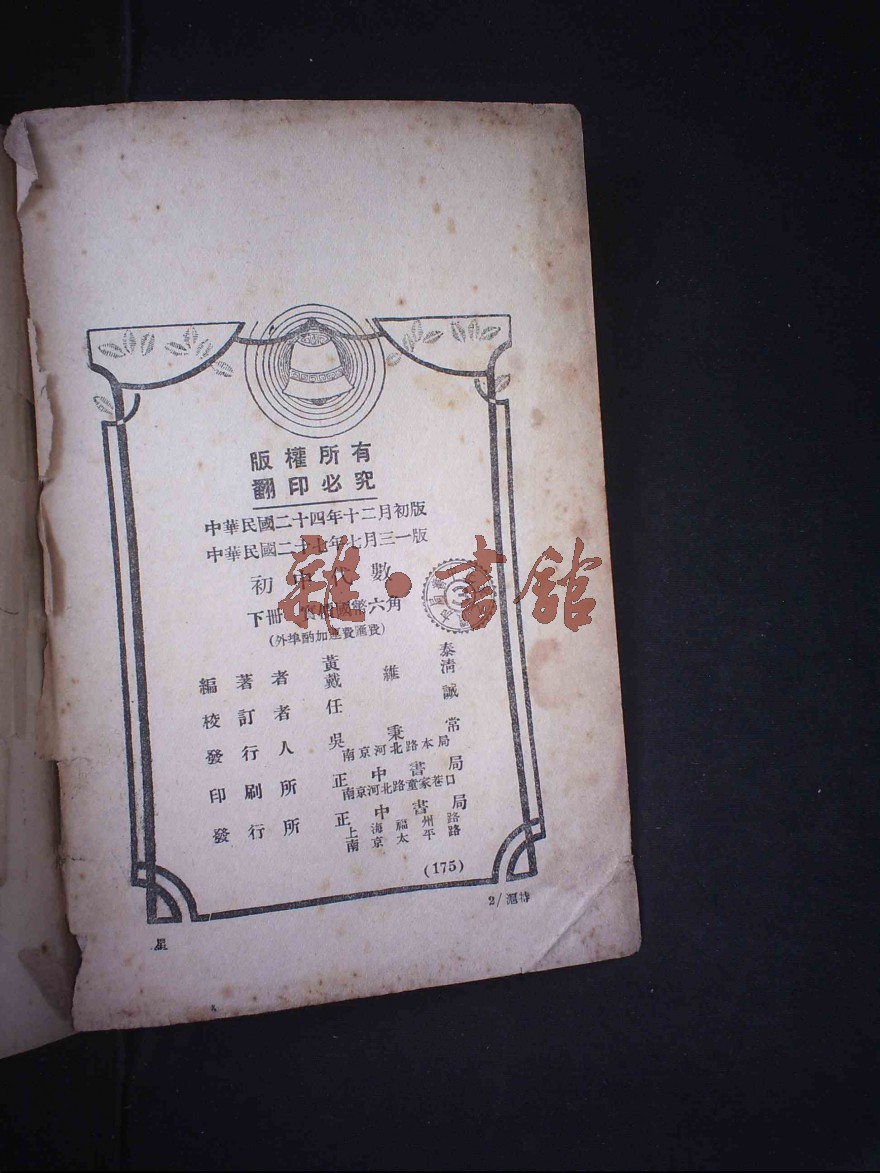 版權所有
翻印必究
中華民國二十四年十二月初版
中華民國二十七年七月三一版
初中代數
下冊 實價國幣六角
(外埠酌加運費匯費)
編著者 黃泰
戴維清
校訂者 任誠
發行人 吳秉常
南京河北路本局
印刷所 正中書局
南京河北路童家巷口
發行所 正中書局
上海福州路
南京太平路
(175)
2/滬特
星
雜·書館